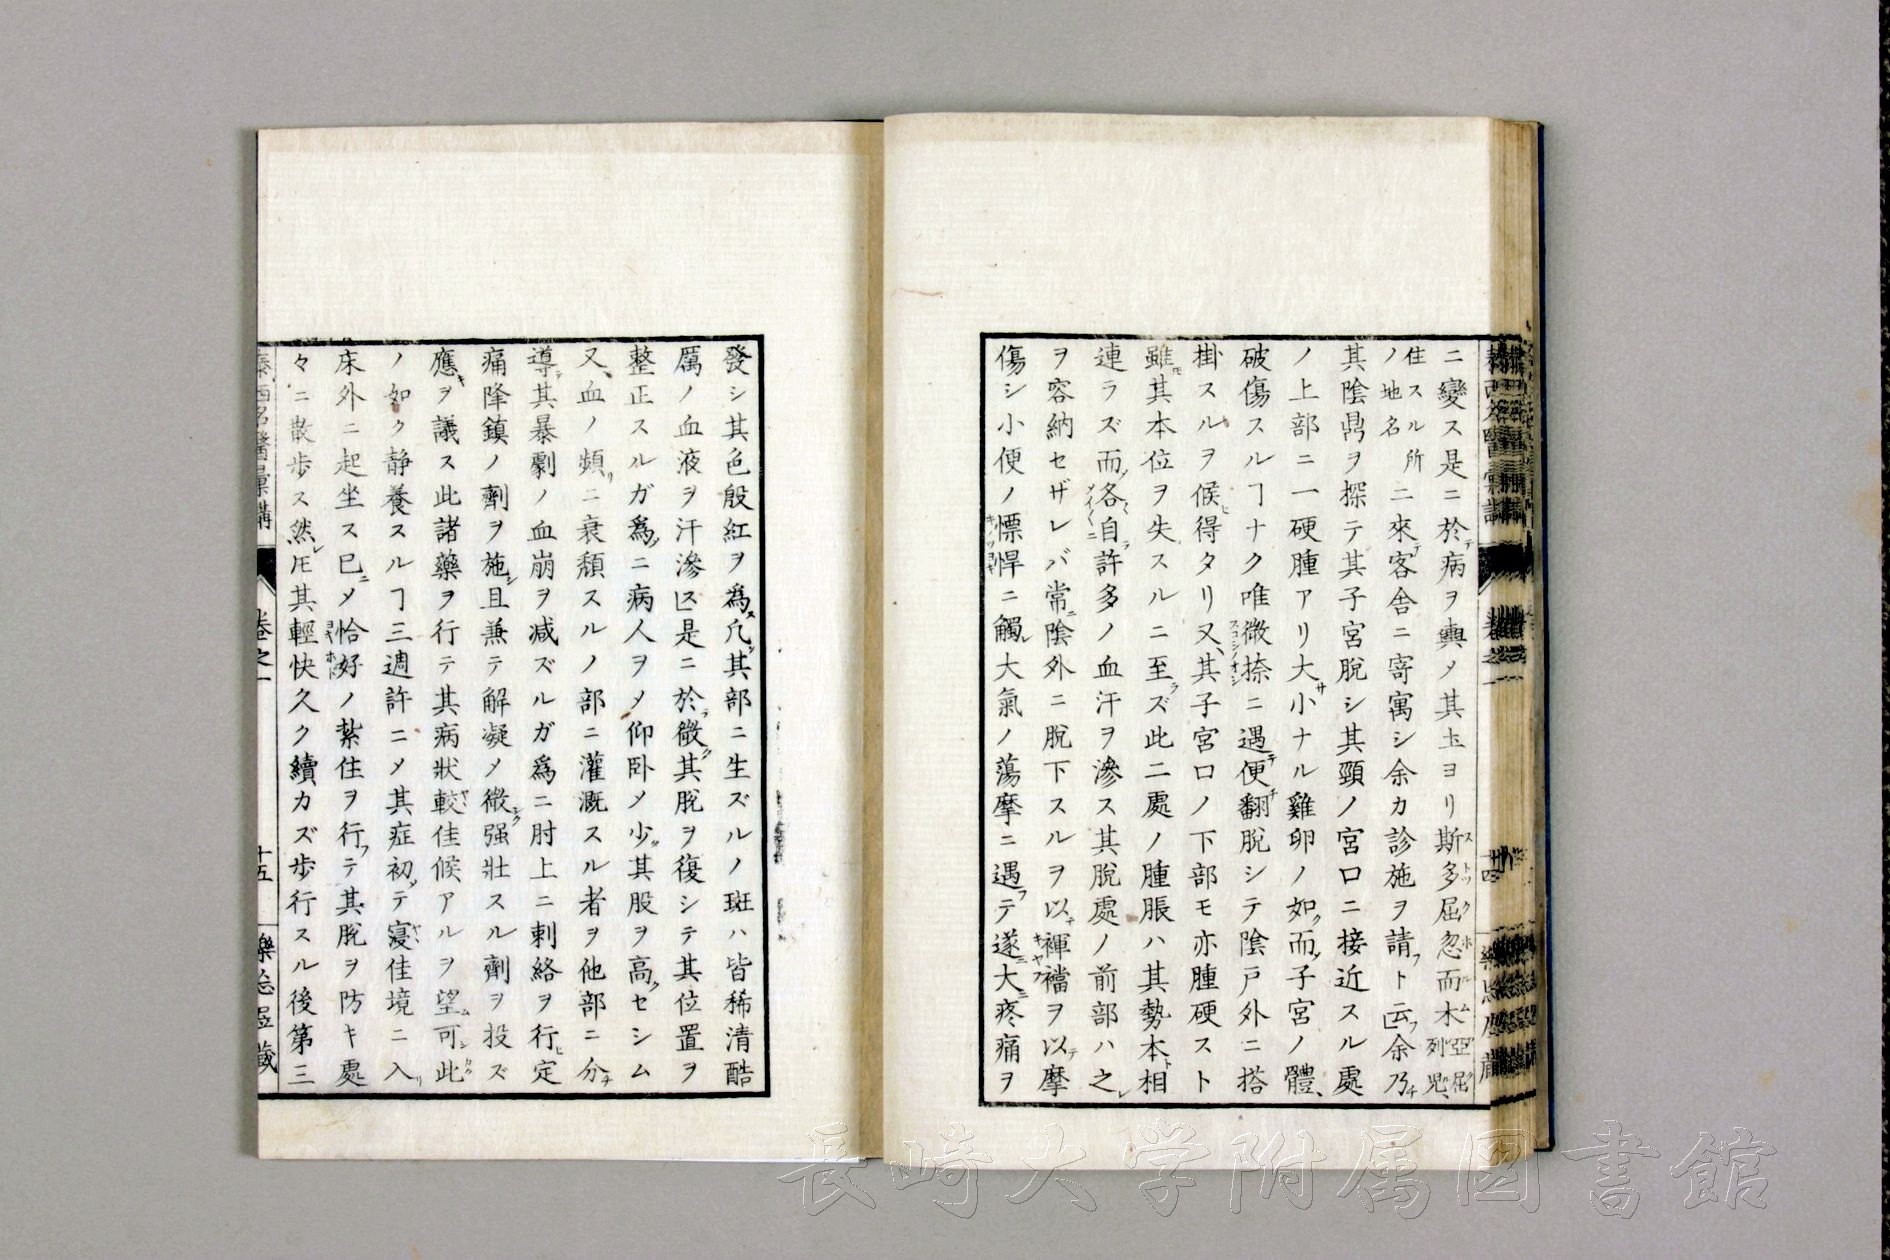 ニ變ス是ニ於テ病ヲ輿メ其土ヨリ斯多屈忽而木亞屈列兒
住スル所ノ地名ニ來テ客舎ニ寄寓シ余カ診施ヲ請フト云フ余乃チ
其陰鼎ヲ探テ其子宮脫シ其頸ノ宮口ニ接近スル處
ノ上部ニ一硬腫アリ大サ小ナル雞卵ノ如ク而シ子宮ノ體、
破傷スルヿナク唯微捺ニ遇テ便チ翻脫シテ陰戸外ニ搭
掛スルヲ候ヒ得タリ又、其子宮口ノ下部モ亦腫硬スト
雖モ其本位ヲ失スルニ至ラズ此二處ノ腫脹ハ其勢本ト相
連ラズ而シ各〻自ラ許多ノ血汗ヲ滲ス其脫處ノ前部ハ之レ
ヲ容納セザレバ常ニ陰外ニ脫下スルヲ以テ褌襠ヲ以テ摩
傷シ小便ノ慓悍ニ觸レ大氣ノ蕩摩ニ遇フテ遂ニ大ニ疼痛ヲ
發シ其色殷紅ヲ為ス凡ソ其部ニ生ズルノ斑ハ皆稀清酷
厲ノ血液ヲ汗滲ス是ニ於テ徴ク其脫ヲ復シテ其位置ヲ
整正スルガ為メニ病人ヲメ仰卧メ少ク其股ヲ高クセシム
又、血ノ頻リニ衰頽スルノ部ニ灌漑スル者ヲ他部ニ分チ
導テ其暴劇ノ血崩ヲ减ズルガ為ニ肘上ニ刺絡ヲ行ヒ定
痛降鎮ノ劑ヲ施シ且兼テ解凝メ微シク强壯スル劑ヲ投ズ
應キヲ議ス此諸藥ヲ行テ其病狀較ヤヽ佳候アルヲ望ム可シ此
ノ如ク静養スルヿ三週許ニメ其症初メテ寖ヤヽ佳境ニ入リ
床外ニ起坐ス已ニメ恰好ノ紮住ヲ行フテ其脫ヲ防キ處
々ニ散歩ス然レ𪜈其輕快久ク續カズ歩行スル後第三
泰西名醫彙講
卷之一
十五
長崎大学附属図書館